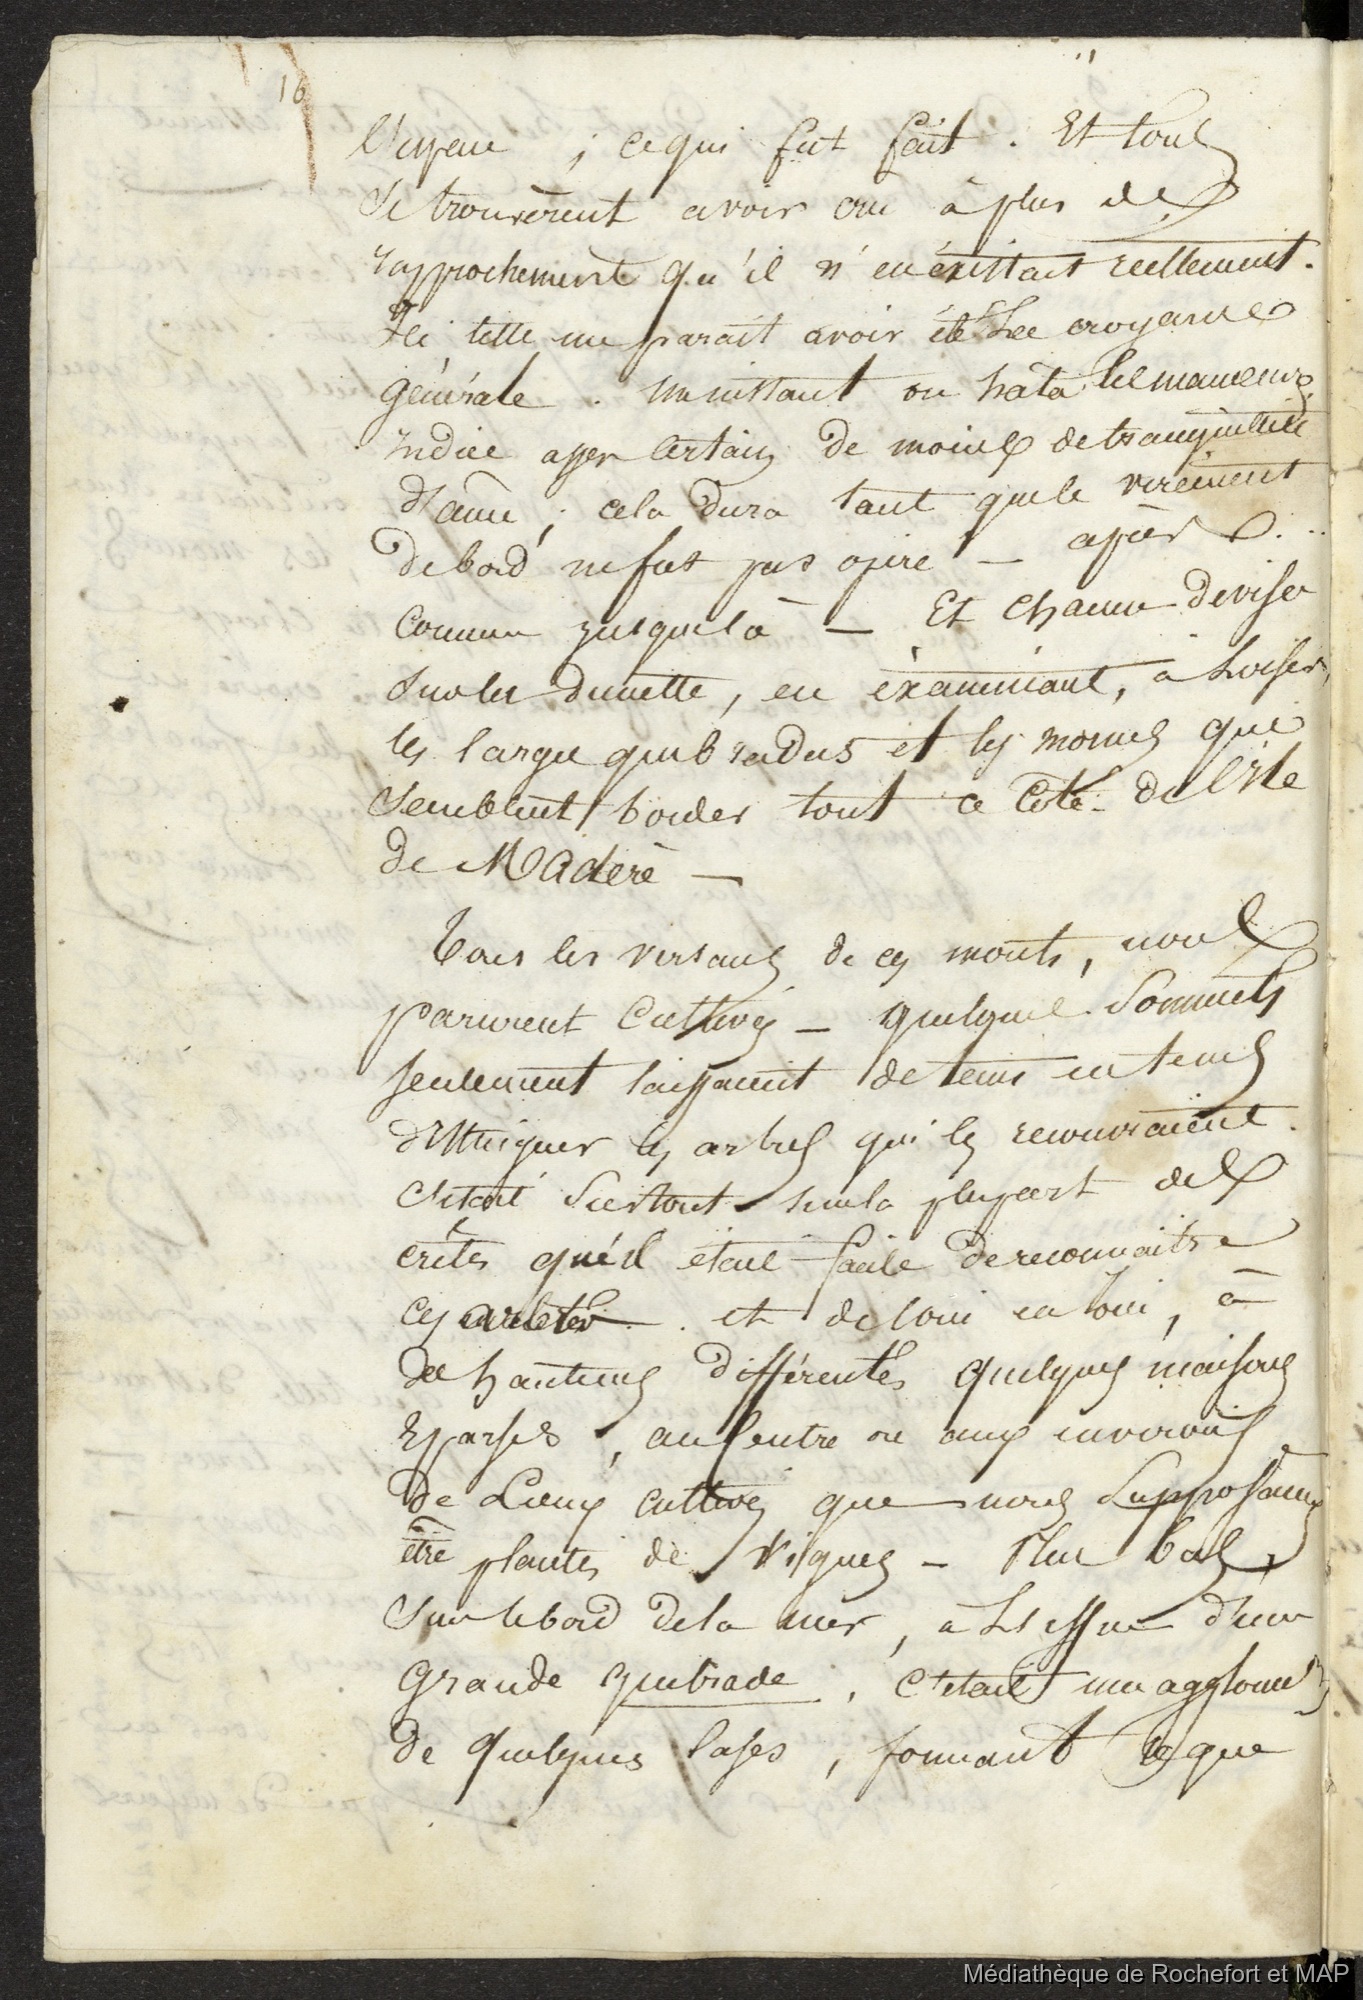 16
; ce qui fut fait . Et tous
se trouvèrent avoir cru à plus de
rapprochement qu'il n'en éxistait reellement.
telle me parait avoir été la croyance
générale . un instant on hâta les manœuvres
indice assez certain de moins de tranquillité
d'ame ; cela dura tant que le virement
de bord ne fut pas opéré — après ...
comme jusque là — Et chacun deviser
sur la dunette, en éxaminant, à loisir,
les larges quebradas et les mornes qui
semblent border tout ce côté de l'isle
de Madère —
Tous les versans de ces monts, nous
parurent cultivés — quelques sommets
seulement laissaient de tems en tems
distinguer les arbres qui les recouvraient.
c'était surtout sur la plupart des
crêtes qu'il était facile de reconnaitre
ces arbres . et de loin en loin, à
des hauteurs différentes quelques maisons
éparses, au centre ou aux environs
de lieux cultivés que nous supposames
être plantés de vignes — Plus bas,
sur le bord de la mer, à l'issue d'une
grande quebrade, c'etait une agglomér
de quelques cases, formant ce que
Médiathèque de Rochefort et MAP